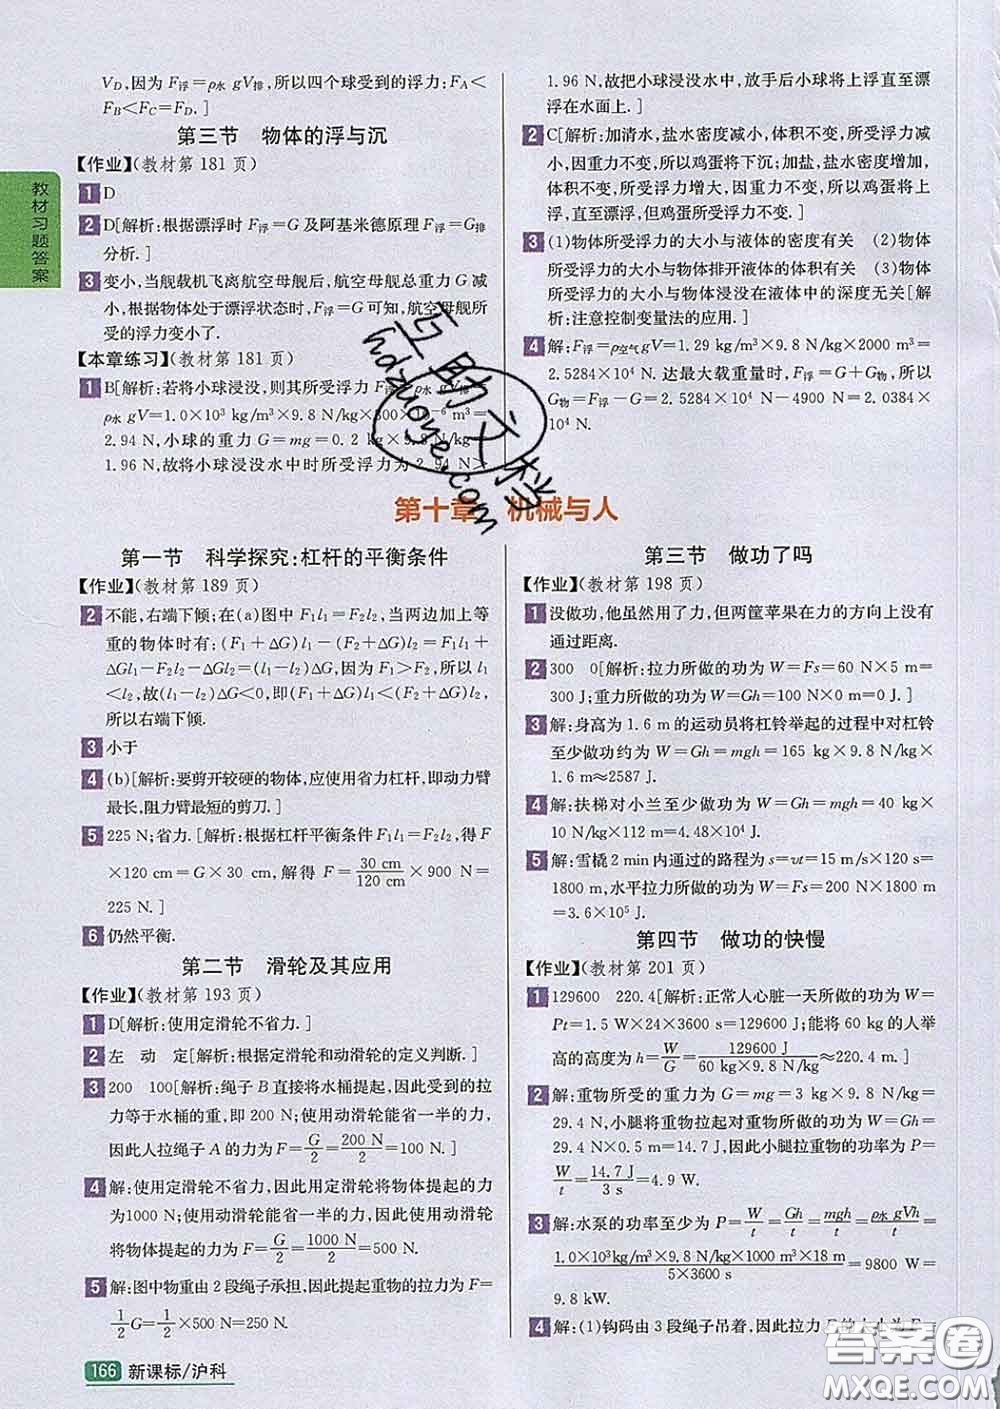 V_D,因为 F浮=ρ水 gV排,所以四个球受到的浮力:F_A<
F_B<F_C=F_D.]
第三节 物体的浮与沉
【作业】(教材第 181 页)
1 D
2 D[解析:根据漂浮时 F浮=G 及阿基米德原理 F浮=G排
分析.]
3 变小,当舰载机飞离航空母舰后,航空母舰总重力 G 减
小,根据物体处于漂浮状态时,F浮=G 可知,航空母舰所
受的浮力变小了.
【本章练习】(教材第 181 页)
1 B[解析:若将小球浸没,则其所受浮力 F浮=ρ水 gV排=
ρ水 gV=1.0×10³ kg/m³×9.8 N/kg×300×10⁻⁶ m³=
2.94 N,小球的重力 G=mg=0.2 kg×9.8 N/kg=
1.96 N,故将小球浸没水中时所受浮力为 2.94 N>
1.96 N,故把小球浸没水中,放手后小球将上浮直至漂
浮在水面上.]
2 C[解析:加清水,盐水密度减小,体积不变,浮力减小,
因重力不变,所以鸡蛋将下沉;加盐,盐水密度增加,
体积不变,浮力增大,因重力不变,所以鸡蛋将上
浮,直至漂浮,但鸡蛋所受浮力不变.]
3 (1)物体所受浮力的大小与液体的密度有关 (2)物体
所受浮力的大小与物体排开液体的体积有关 (3)物体
所受浮力的大小与物体浸没在液体中的深度无关[解
析:注意控制变量法的应用.]
4 解:F浮=ρ空气gV=1.29 kg/m³×9.8 N/kg×2000 m³=
2.5284×10⁴ N. 达最大载重量时,F浮=G+G物,所以
G物=F浮-G=2.5284×10⁴ N-4900 N=2.0384×
10⁴ N.
教材习题答案
第十章 机械与人
第一节 科学探究:杠杆的平衡条件
【作业】(教材第 189 页)
2 不能,右端下倾;在(a)图中 F₁l₁=F₂l₂,当两边加上等
重的物体时有:(F₁+ΔG)l₁-(F₂+ΔG)l₂=F₁l₁+
ΔGl₁-F₂l₂-ΔGl₂=(l₁-l₂)ΔG,因为 F₁>F₂,所以 l₁
<l₂,故(l₁-l₂)ΔG<0,即(F₁+ΔG)l₁<(F₂+ΔG)l₂,
所以右端下倾.
3 小于
4 (b)[解析:要剪开较硬的物体,应使用省力杠杆,即动力臂
最长,阻力臂最短的剪刀.]
5 225 N;省力.[解析:根据杠杆平衡条件 F₁l₁=F₂l₂,得 F
×120 cm=G×30 cm,解得 F=30 cm/120 cm×900 N=
225 N.]
6 仍然平衡.
第二节 滑轮及其应用
【作业】(教材第 193 页)
1 D[解析:使用定滑轮不省力.]
2 左 动 定[解析:根据定滑轮和动滑轮的定义判断.]
3 200 100[解析:绳子 B 直接将水桶提起,因此受到的拉
力等于水桶的重,即 200 N;使用动滑轮能省一半的力,
因此人拉绳子 A 的力为 F=G/2=200 N/2=100 N.]
4 解:使用定滑轮不省力,因此用定滑轮将物体提起的力
为1000 N;使用动滑轮能省一半的力,因此使用动滑轮
将物体提起的力为 F=G/2=1000 N/2=500 N.
5 解:图中物重由 2 段绳子承担,因此提起重物的拉力为 F=
1/2G=1/2×500 N=250 N.
第三节 做功了吗
【作业】(教材第 198 页)
1 没做功,他虽然用了力,但两筐苹果在力的方向上没有
通过距离.
2 300 0[解析:拉力所做的功为 W=Fs=60 N×5 m=
300 J;重力所做的功为 W=Gh=100 N×0 m=0 J.]
3 解:身高为 1.6 m 的运动员将杠铃举起的过程中对杠铃
至少做功约为 W=Gh=mgh=165 kg×9.8 N/kg×
1.6 m≈2587 J.
4 解:扶梯对小兰至少做功为 W=Gh=mgh=40 kg
×10 N/kg×112 m=4.48×10⁴ J.
5 解:雪橇 2 min 内通过的路程为 s=vt=15 m/s×120 s=
1800 m,水平拉力所做的功为 W=Fs=200 N×1800 m
=3.6×10⁵ J.
第四节 做功的快慢
【作业】(教材第 201 页)
1 129600 220.4[解析:正常人心脏一天所做的功为 W=
Pt=1.5 W×24×3600 s=129600 J;能将 60 kg 的人举
高的高度为 h=W/G=129600 J/60 kg×9.8 N/kg≈220.4 m.]
2 解:重物所受的重力为 G=mg=3 kg×9.8 N/kg=
29.4 N,小腿将重物拉起对重物所做的功为 W=Gh=
29.4 N×0.5 m=14.7 J,因此小腿拉重物的功率为 P=
W/t=14.7 J/3 s=4.9 W.
3 解:水泵的功率至少为 P=W/t=Gh/t=mgh/t=ρ水 gVh/t=
1.0×10³kg/m³×9.8 N/kg×1000 m³×18 m/5×3600 s=9800 W=
9.8 kW.
4 解:(1)钩码由 3 段绳子吊着,因此拉力
166 新课标/沪科
互助文档
hdzuoye.com
答案圈
MXQE.COM